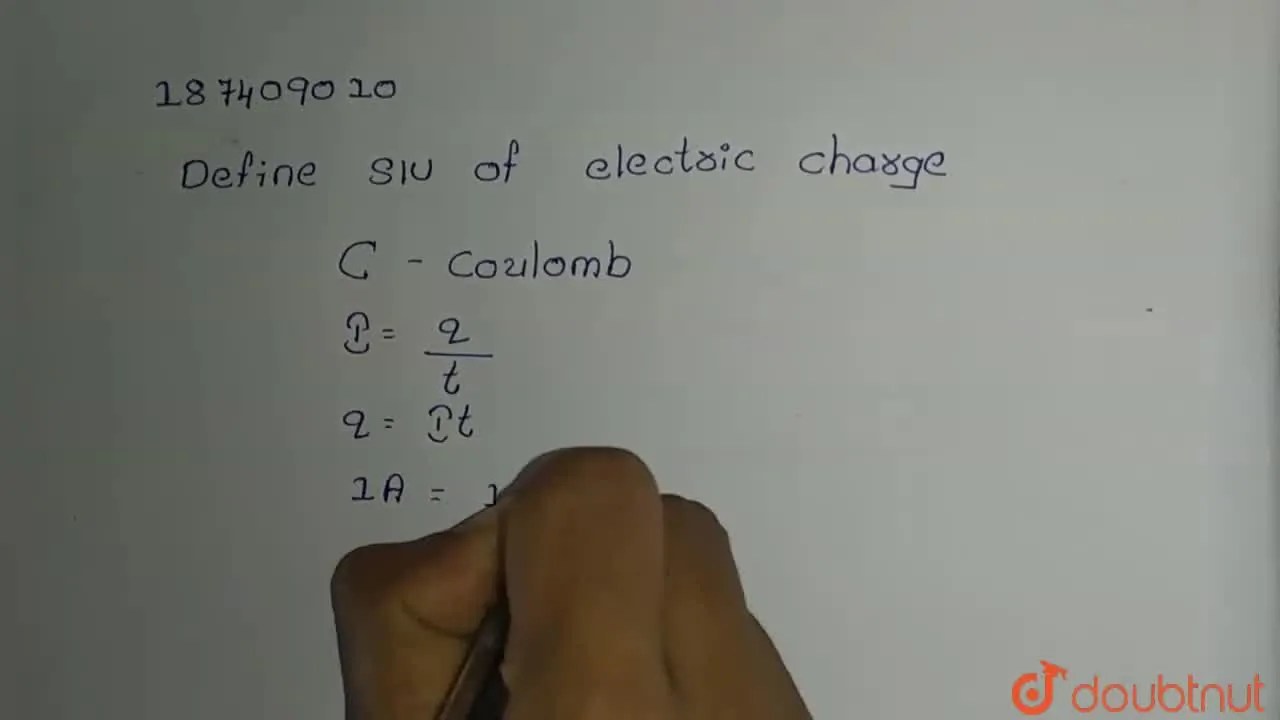 187409010
Define SIU of electric charge
C - Coulomb
I = q
t
q = It
1A = 1
doubtnut